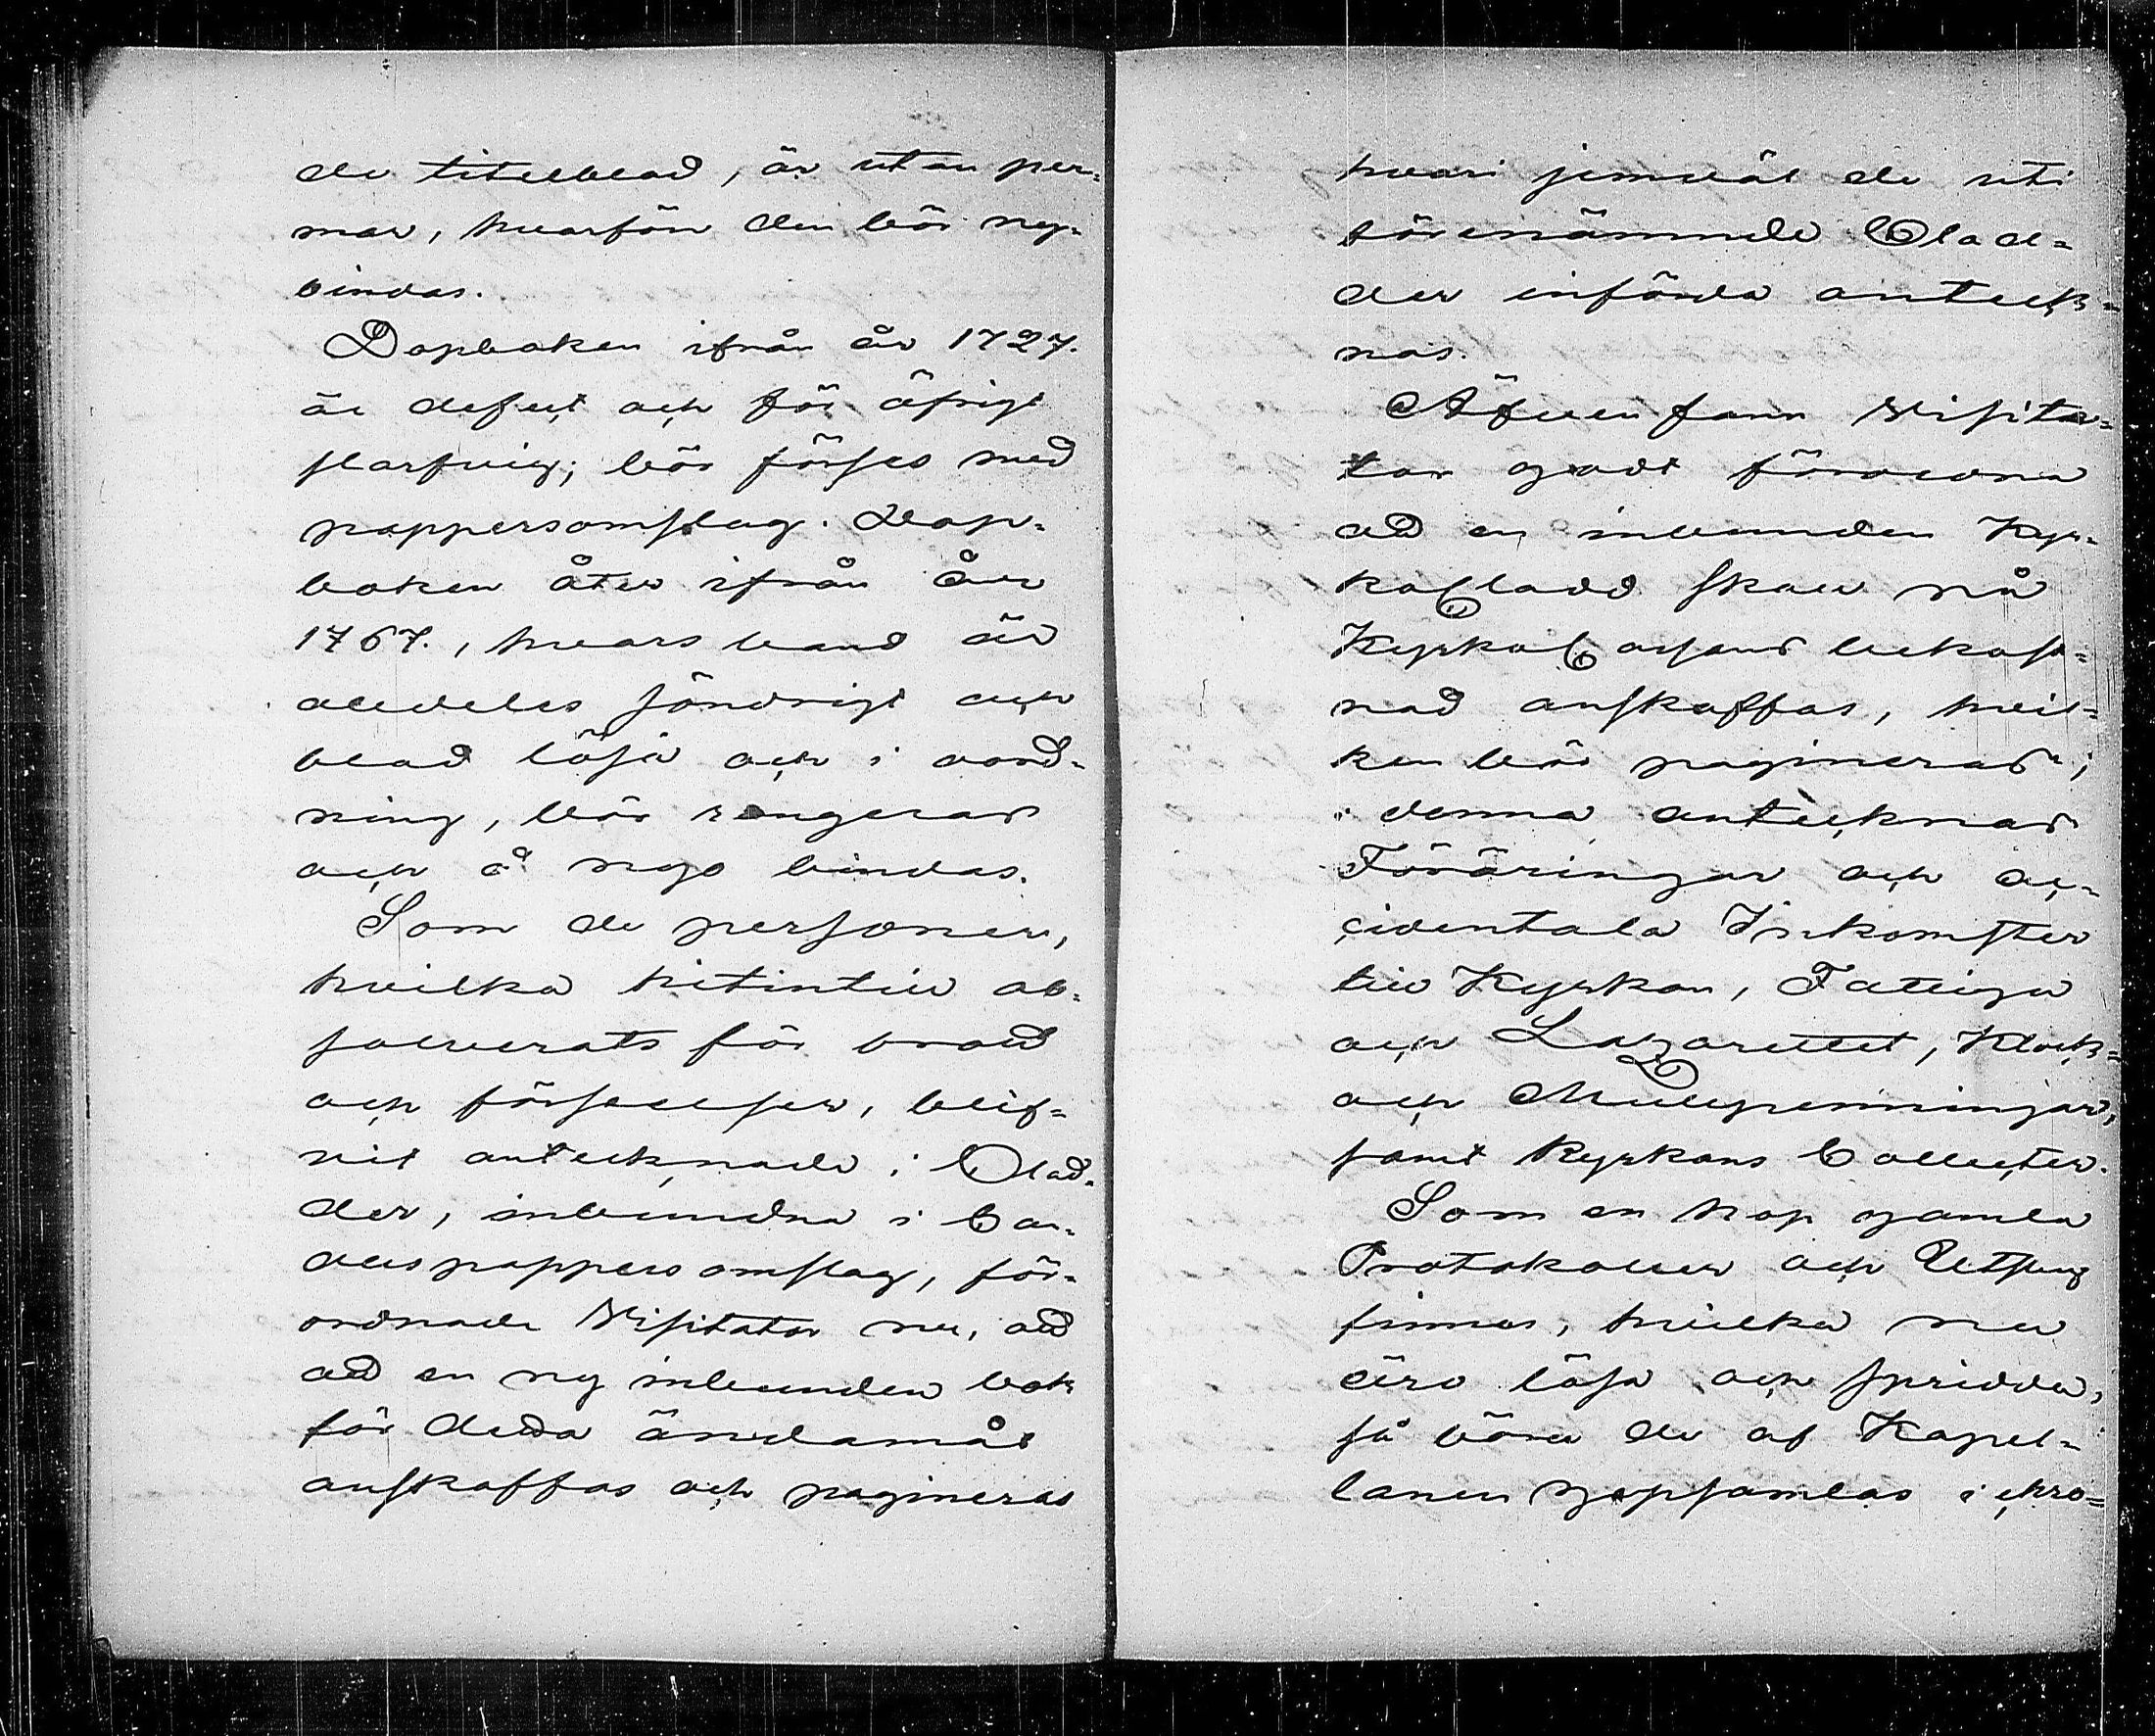 de titelblad, är utan per=
mar, hvarför den bör ny=
bindas.
Dopboken ifrån år 1727.
är defect och för öfrigt
slarfvig; bör förses med
pappersomslag. Dop=
boken åter ifrån år
1767., hvars band är
aldeles söndrigt och
blad lösa och i oord=
ning, bör rangeras
och å nyo bindas.
Som de personer,
hvilka hitintill ab=
solverats för brott
och förseelser, blif=
vit antecknade i Clad=
der, inbundna i Car=
dus pappersomslag, för=
ordnade Visitator nu, att
att en ny inbunden bok
för detta ändamål
anskaffas och pagineras
hvari jemväl de uti
förenämnde Clad=
der införda anteck=
nas.
Äfven fann Visita=
tor godt förordna
att en inbunden Kyr=
koCladd skall på
KyrkoCassans bekost=
nad anskaffas, hvil=
ken bör pagineras;
i denna antecknas
Föräringar och ac=
cidentala Inkomster
till Kyrkan, Fattiga
och Lazarettet, Klock=
och Mullpenningar,
samt Kyrkans Collecter.
Som en hop gamla
Protokoller och Utslag
finnas, hvilka nu
äro lösa och spridda,
så böra de af Kapel=
lanen hopsamlas i chro=